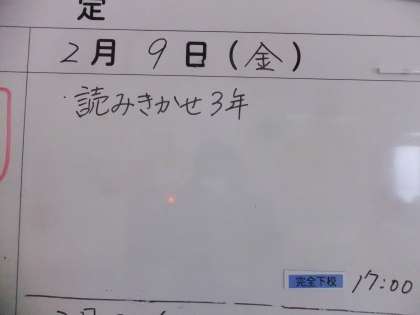 定
2月9日(金)
・読みきかせ3年
完全下校 17:00